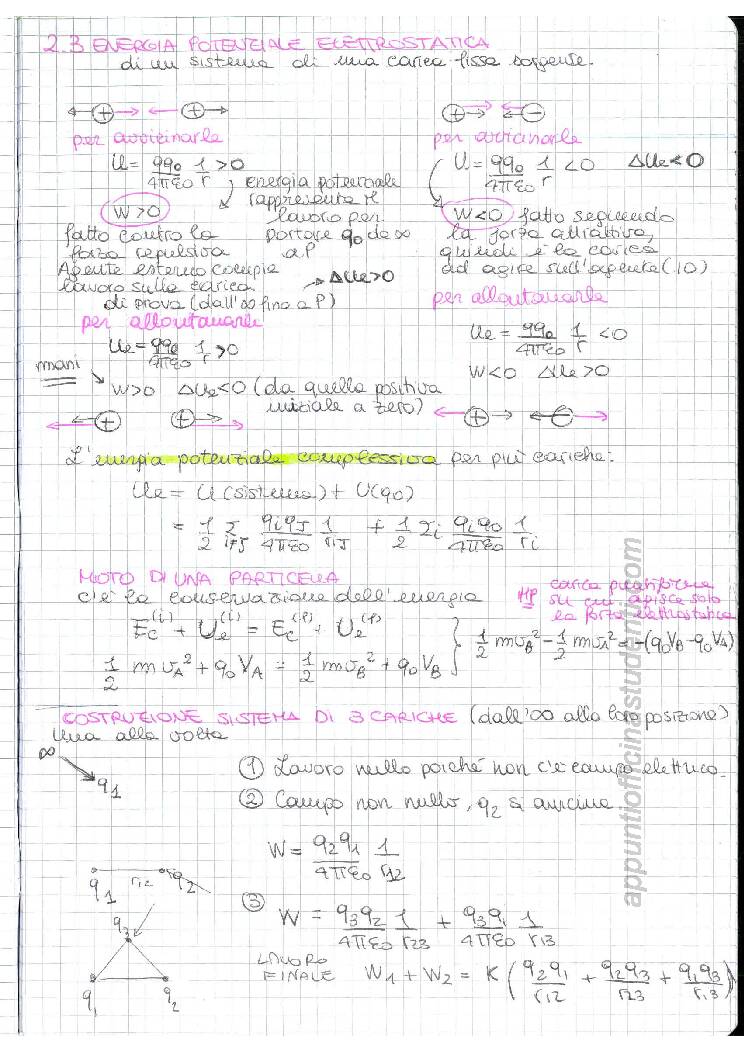 2.3 ENERGIA POTENZIALE ELETTROSTATICA
di un sistema di una carica fissa sorgente.
+ + + -
per avvicinarle
U = qq0/4πε0 1/r > 0
energia potenziale
rappresenta il
lavoro per
portare q0 da ∞
a P
W > 0
fatto contro la
forza repulsiva
Agente esterno compie
lavoro sulla carica
di prova (dall'∞ fino a P)
→ ΔUe > 0
per avvicinarle
U = qq0/4πε0 1/r < 0 ΔUe < 0
W < 0 fatto seguendo
la forza attrattiva,
quindi è la carica
ad agire sull'agente (IO)
per allontanarle
Ue = qq0/4πε0 1/r > 0
mani
W > 0 ΔUe < 0 (da quella positiva
iniziale a zero)
+ +
per allontanarle
Ue = qq0/4πε0 1/r < 0
W < 0 ΔUe > 0
+ -
L'energia potenziale complessiva per più cariche:
Ue = U(sistema) + U(q0)
= 1/2 Σi≠j qiqj/4πε0 1/rij + 1/2 Σi qiq0/4πε0 1/ri
MOTO DI UNA PARTICELLA
c'è la conservazione dell'energia
HP carica puntiforme
su cui agisce solo
la forza elettrostatica
Ec(i) + Ue(i) = Ec(f) + Ue(f)
1/2 mvA² + q0VA = 1/2 mvB² + q0VB
1/2 mvB² - 1/2 mvA² = -(q0VB - q0VA)
COSTRUZIONE SISTEMA DI 3 CARICHE (dall'∞ alla loro posizione)
Una alla volta
∞
q1
① Lavoro nullo poiché non c'è campo elettrico.
② Campo non nullo, q2 si avvicina
W = q2q1/4πε0 1/r12
q1 r12 q2
③ W = q3q2/4πε0 1/r23 + q3q1/4πε0 1/r13
q3
q1 q2
LAVORO
FINALE W1 + W2 = K (q2q1/r12 + q2q3/r23 + q1q3/r13)
appuntiofficinastudenti.com